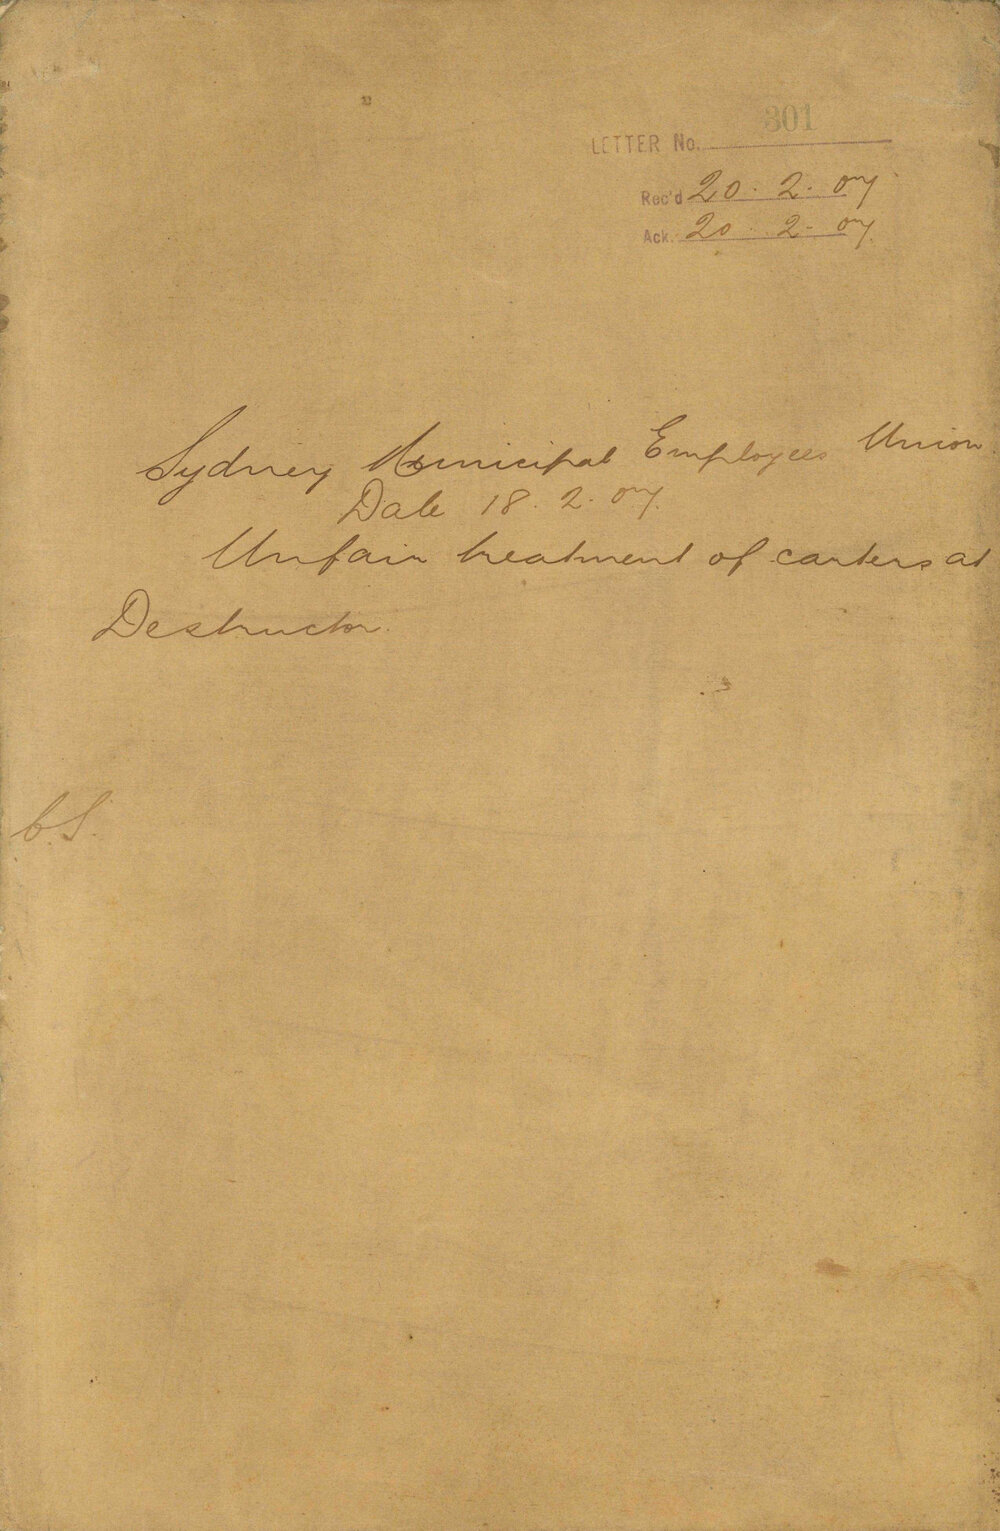 301
LETTER No.
Rec'd 20. 2. 07
Ack. 20. 2. 07.
Sydney Municipal Employees Union
Date 18. 2. 07.
Unfair treatment of carters at
Destructor.
C.S.